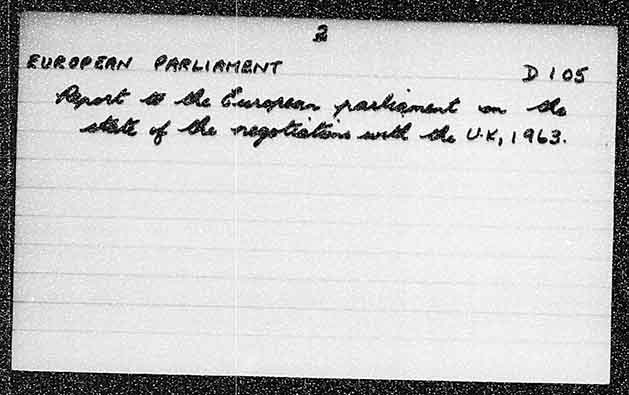 2
EUROPEAN PARLIAMENT D 105
Report to the European parliament on the
state of the negotiations with the U.K, 1963.